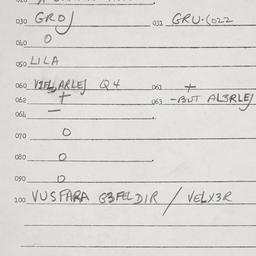 030 GROJ 031 GRU·(022
040 O
050 LILA
060 ARLEJ Q4 061 +
062 + 063 -BUT AL3RLEJ
064 —
070 O
080 O
090 O
100 VUSFARA G3FELDIR / VELX3R